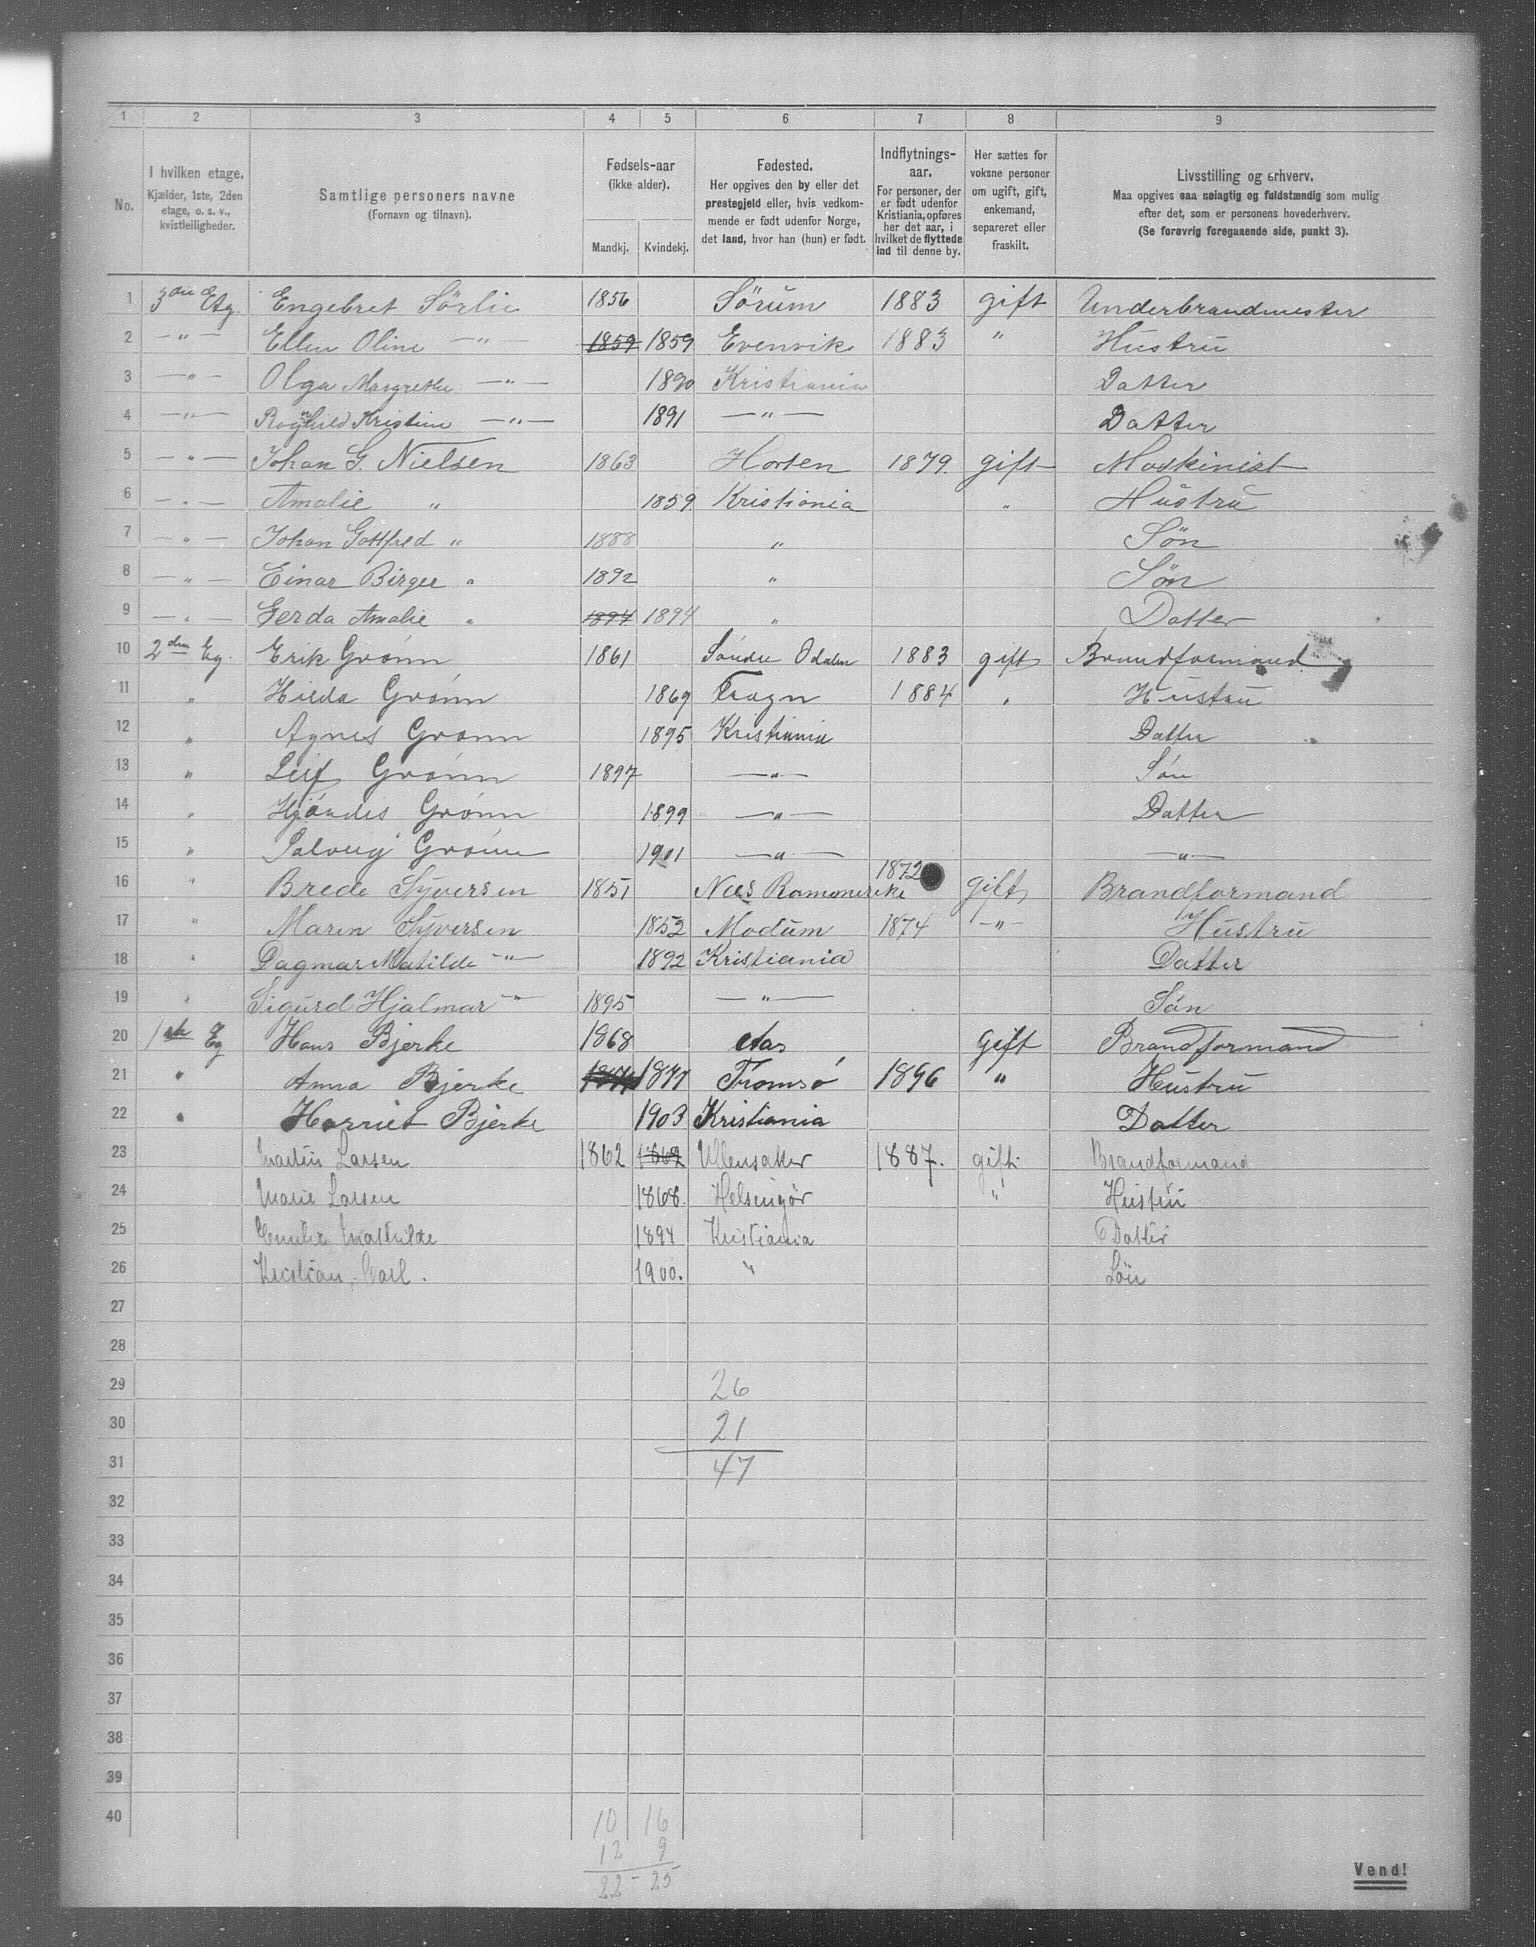 1 2 3 4 5 6 7 8 9
No.
I hvilken etage.
Kjælder, 1ste, 2den
etage, o. s. v.,
kvistleiligheder.
Samtlige personers navne
(Fornavn og tilnavn).
Fødsels-aar
(ikke alder).
Mandkj. Kvindekj.
Fødested.
Her opgives den by eller det
prestegjeld eller, hvis vedkom-
mende er født udenfor Norge,
det land, hvor han (hun) er født.
Indflytnings-
aar.
For personer, der
er født udenfor
Kristiania, opføres
her det aar, i
hvilket de flyttede
ind til denne by.
Her sættes for
voksne personer
om ugift, gift,
enkemand,
separeret eller
fraskilt.
Livsstilling og erhverv.
Maa opgives saa nøiagtig og fuldstændig som mulig
efter det, som er personens hovederhverv.
(Se forøvrig foregaaende side, punkt 3).
1 3die Etg. Engebret Sörlie 1856 Sörum 1883 gift Underbrandmester
2 —"— Ellen Oline —"— 1859 1859 Evenvik 1883 " Hustru
3 —"— Olga Margrethe —"— 1890 Kristiania Datter
4 —"— Ragnhild Kristine —"— 1891 —"— Datter
5 —"— Johan G. Nielsen 1863 Horten 1879. gift Maskinist
6 —"— Amalie " 1859 Kristiania " Hustru
7 —"— Johan Gottfred " 1888 " Sön
8 —"— Einar Birger " 1892 " Sön
9 —"— Gerda Amalie " 1894 1894 " Datter
10 2den Eg. Erik Grönn 1861 Söndre Odalen 1883 gift Brandformand
11 " Hilda Grönn 1869 Frogn 1884 " Hustru
12 " Agnes Grönn 1895 Kristiania Datter
13 " Leif Grönn 1897 —"— Sön
14 " Hjördis Grönn 1899 —"— Datter
15 " Solveig Grönn 1901 —"— —"—
16 " Brede Syversen 1851 Næs Romerike 1872 gift Brandformand
17 " Maren Syversen 1852 Modum 1874 —"— Hustru
18 " Dagmar Matilde —"— 1892 Kristiania Datter
19 " Sigurd Hjalmar —"— 1895 —"— Sön
20 1ste Eg Hans Bjerke 1868 Aas gift Brandformand
21 " Anna Bjerke 1877 Tromsö 1896 " Hustru
22 " Harriet Bjerke 1903 Kristiania Datter
23 Martin Larsen 1862 1862 Ullensaker 1887. gift. Brandformand
24 Marie Larsen 1868. Helsingør " Hustru
25 Mathilde 1894 Kristiania Datter
26 Kristian, Carl. 1900. " Sön
27
28
29 26
30 21
31 47
32
33
34
35
36
37
38
39
40 10 16
12 9
22 - 25
Vend!